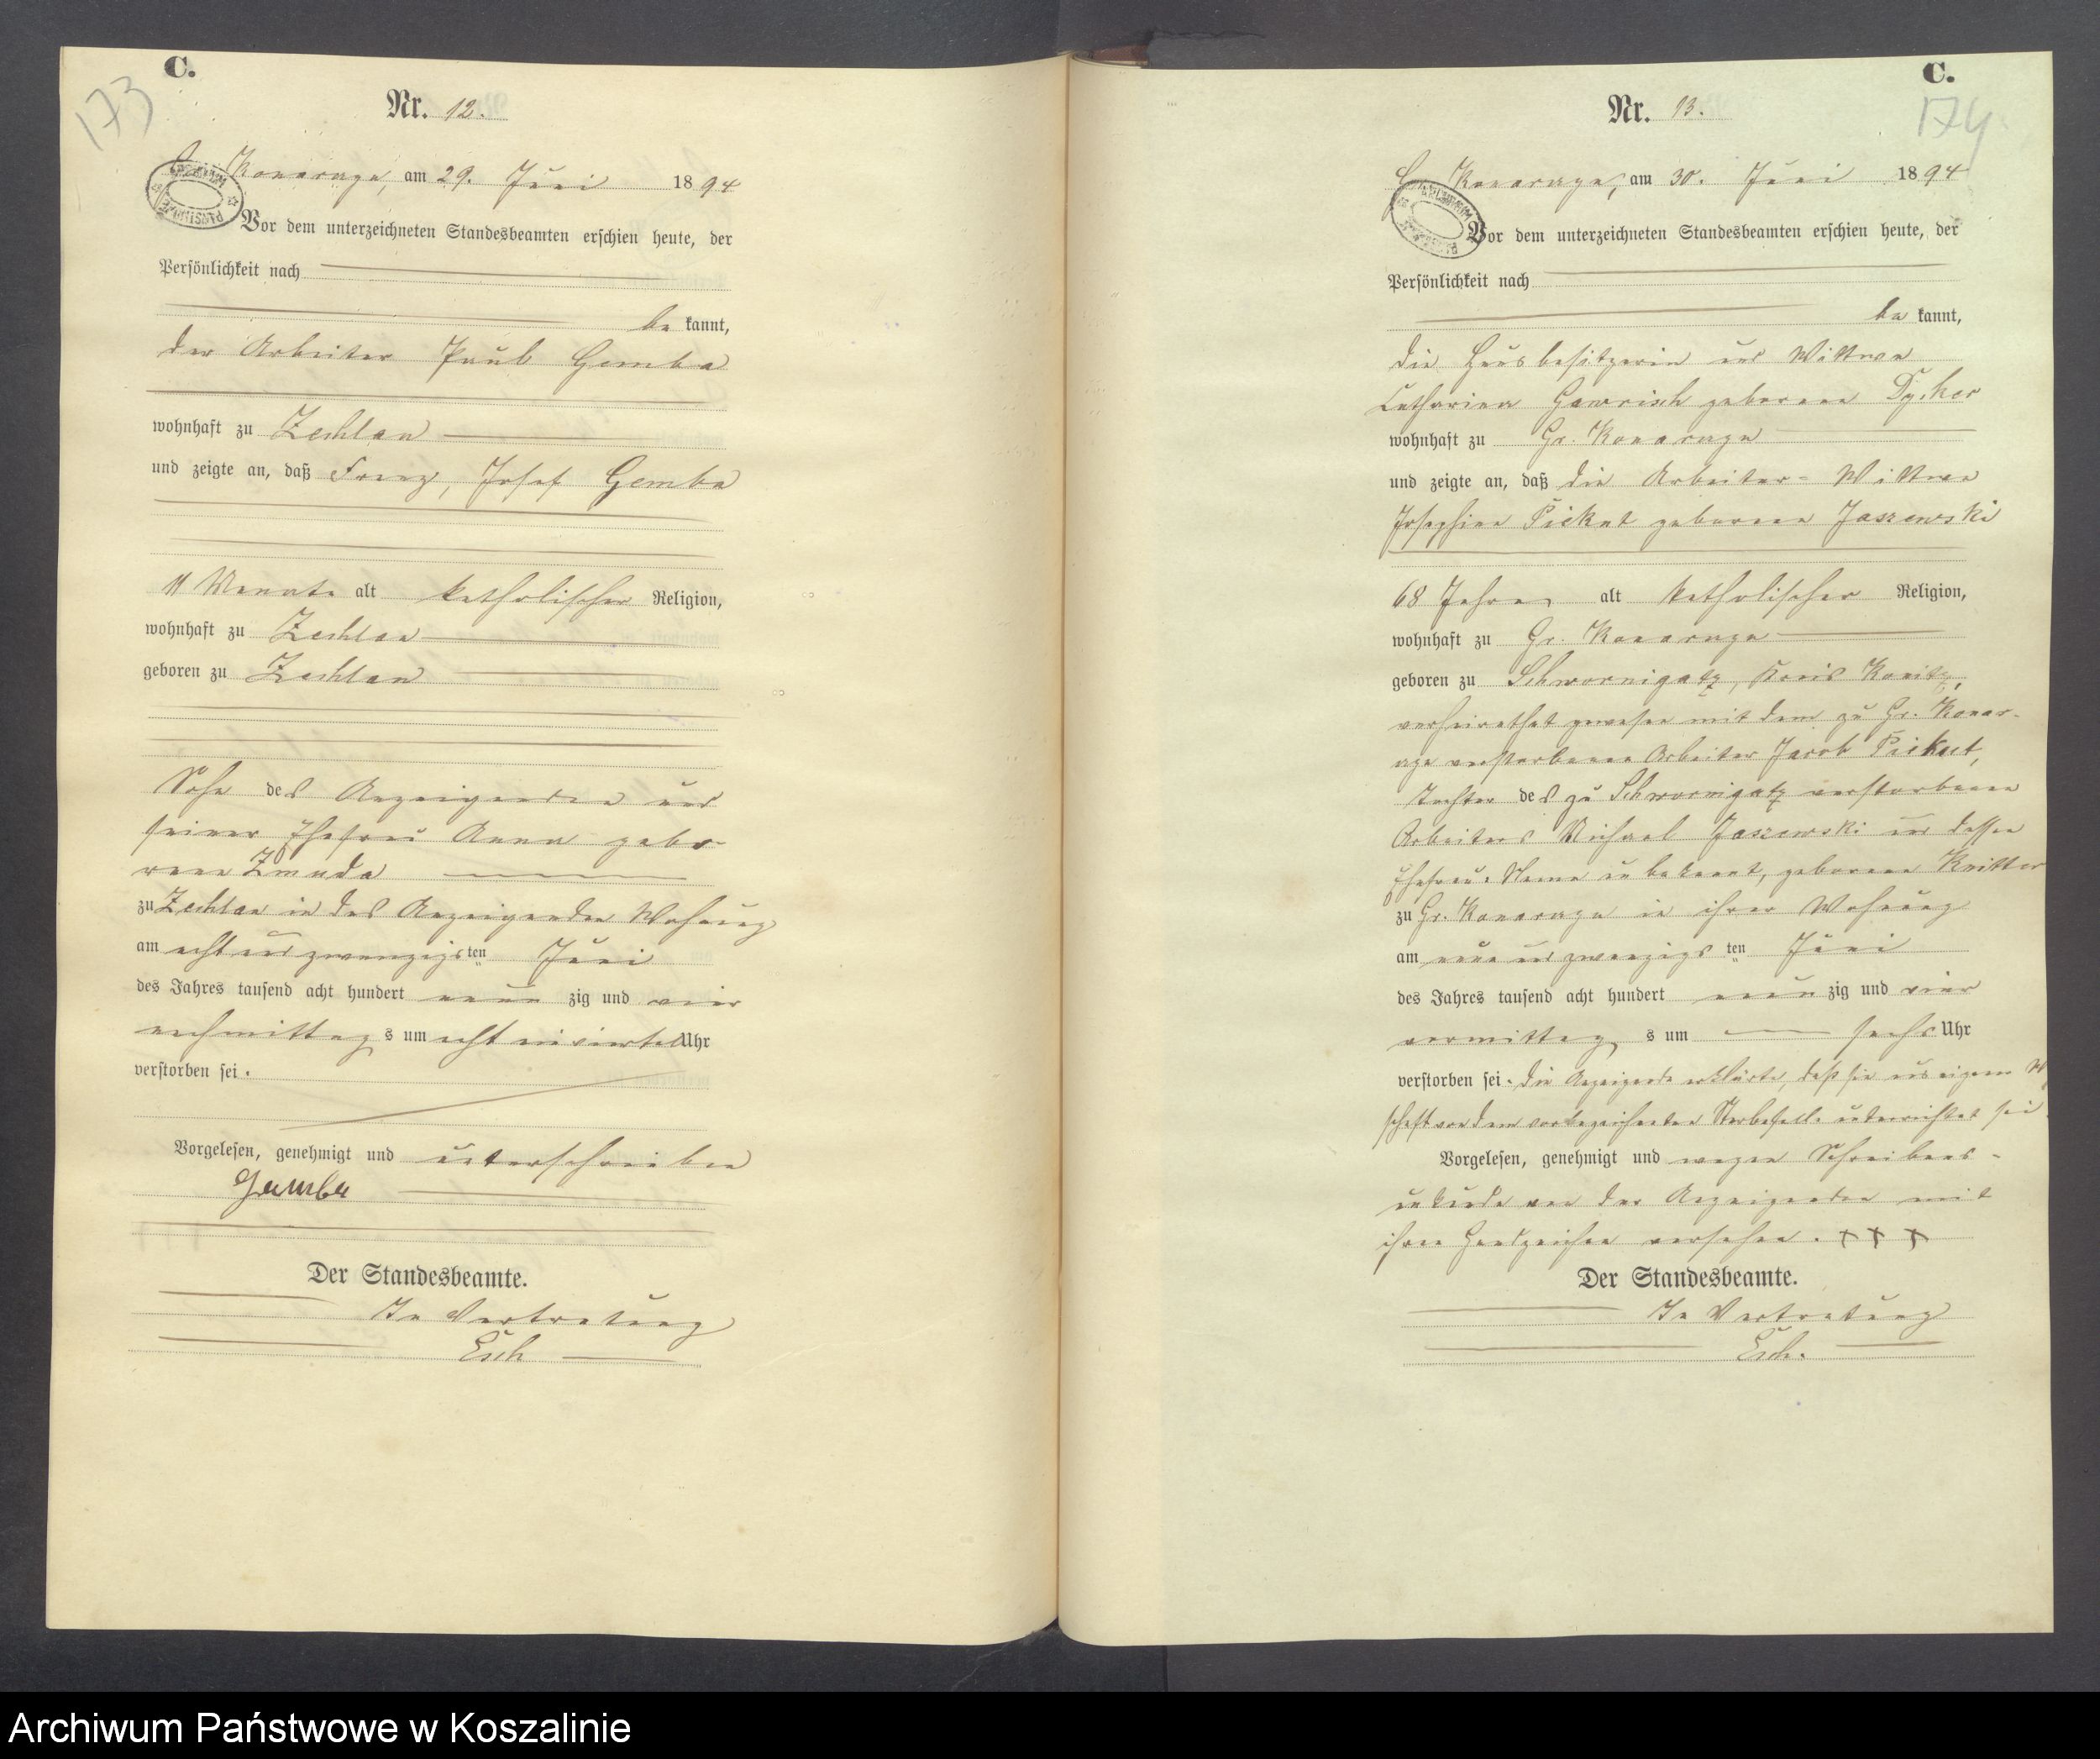 C.
173
Nr. 12.
Konarzyn, am 29. Juni 1894
Vor dem unterzeichneten Standesbeamten erschien heute, der
Persönlichkeit nach
bekannt,
der Arbeiter Paul Gemba
wohnhaft zu Zechlau
und zeigte an, daß Franz, Josef Gemba
11 Monate alt katholischer Religion,
wohnhaft zu Zechlau
geboren zu Zechlau
Sohn des Anzeigenden und
seiner Ehefrau Anna gebo-
rene Zmuda
zu Zechlau in des Anzeigenden Wohnung
am acht und zwanzigsten Juni
des Jahres tausend acht hundert neunzig und vier
nachmittags um acht ein viertel Uhr
verstorben sei.
Vorgelesen, genehmigt und unterschrieben
Gemba
Der Standesbeamte.
In Vertretung
Esch
C.
174
Nr. 13.
Gr. Konarzyn, am 30. Juni 1894
Vor dem unterzeichneten Standesbeamten erschien heute, der
Persönlichkeit nach
bekannt,
die Hausbesitzerin und Wittwe
Catharina Gawrisch geborene
wohnhaft zu Gr. Konarzyn
und zeigte an, daß die Arbeiter-Wittwe
Josephine Piekut geborene Jaszewski
68 Jahre alt katholischer Religion,
wohnhaft zu Gr. Konarzyn
geboren zu Schwornigatz, Kreis Konitz,
verheirathet gewesen mit dem zu Gr. Konar-
zyn verstorbenen Arbeiter Jacob Piekut,
Tochter des zu Schwornigatz verstorbenen
Arbeiters Michael Jaszewski und dessen
Ehefrau, Name unbekannt, geborene Knitter
zu Gr. Konarzyn in ihrer Wohnung
am neun und zwanzigsten Juni
des Jahres tausend acht hundert neunzig und vier
vormittags um sechs Uhr
verstorben sei. Die Anzeigende erklärte, daß sie aus eigener
schaft von dem vorbezeichneten Sterbefalle unterrichtet sei.
Vorgelesen, genehmigt und wegen Schreibens-
unkunde von der Anzeigenden mit
ihren Handzeichen versehen. + + +
Der Standesbeamte.
In Vertretung
Esch.
Archiwum Państwowe w Koszalinie